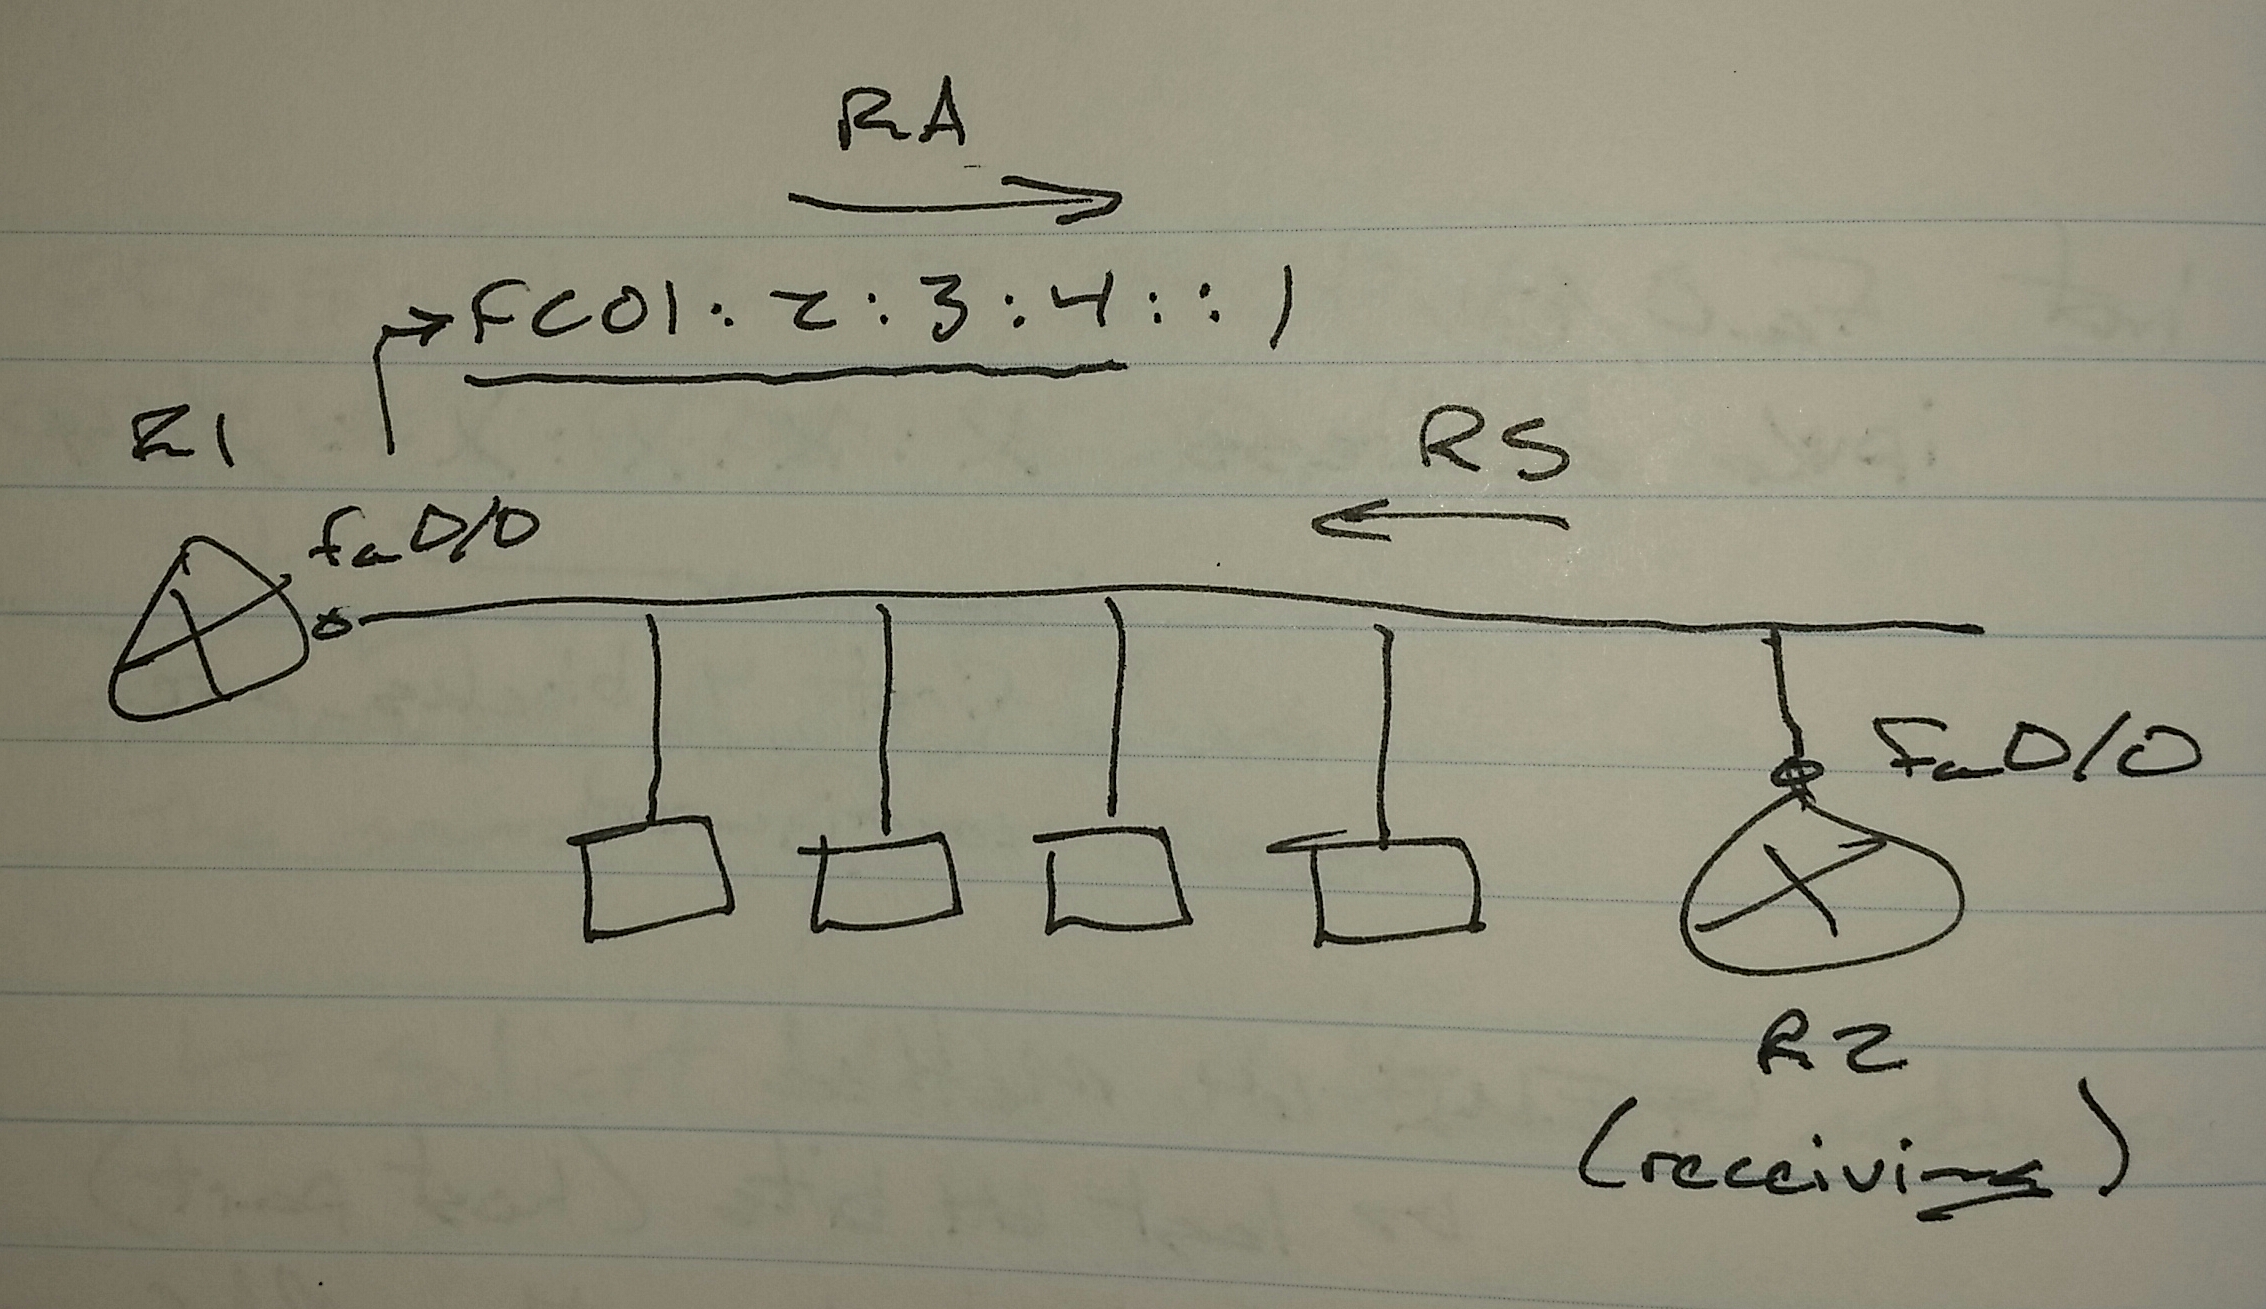 RA
FC01:2:3:4::1
R1
RS
fa0/0
Fa0/0
R2
(receiving)